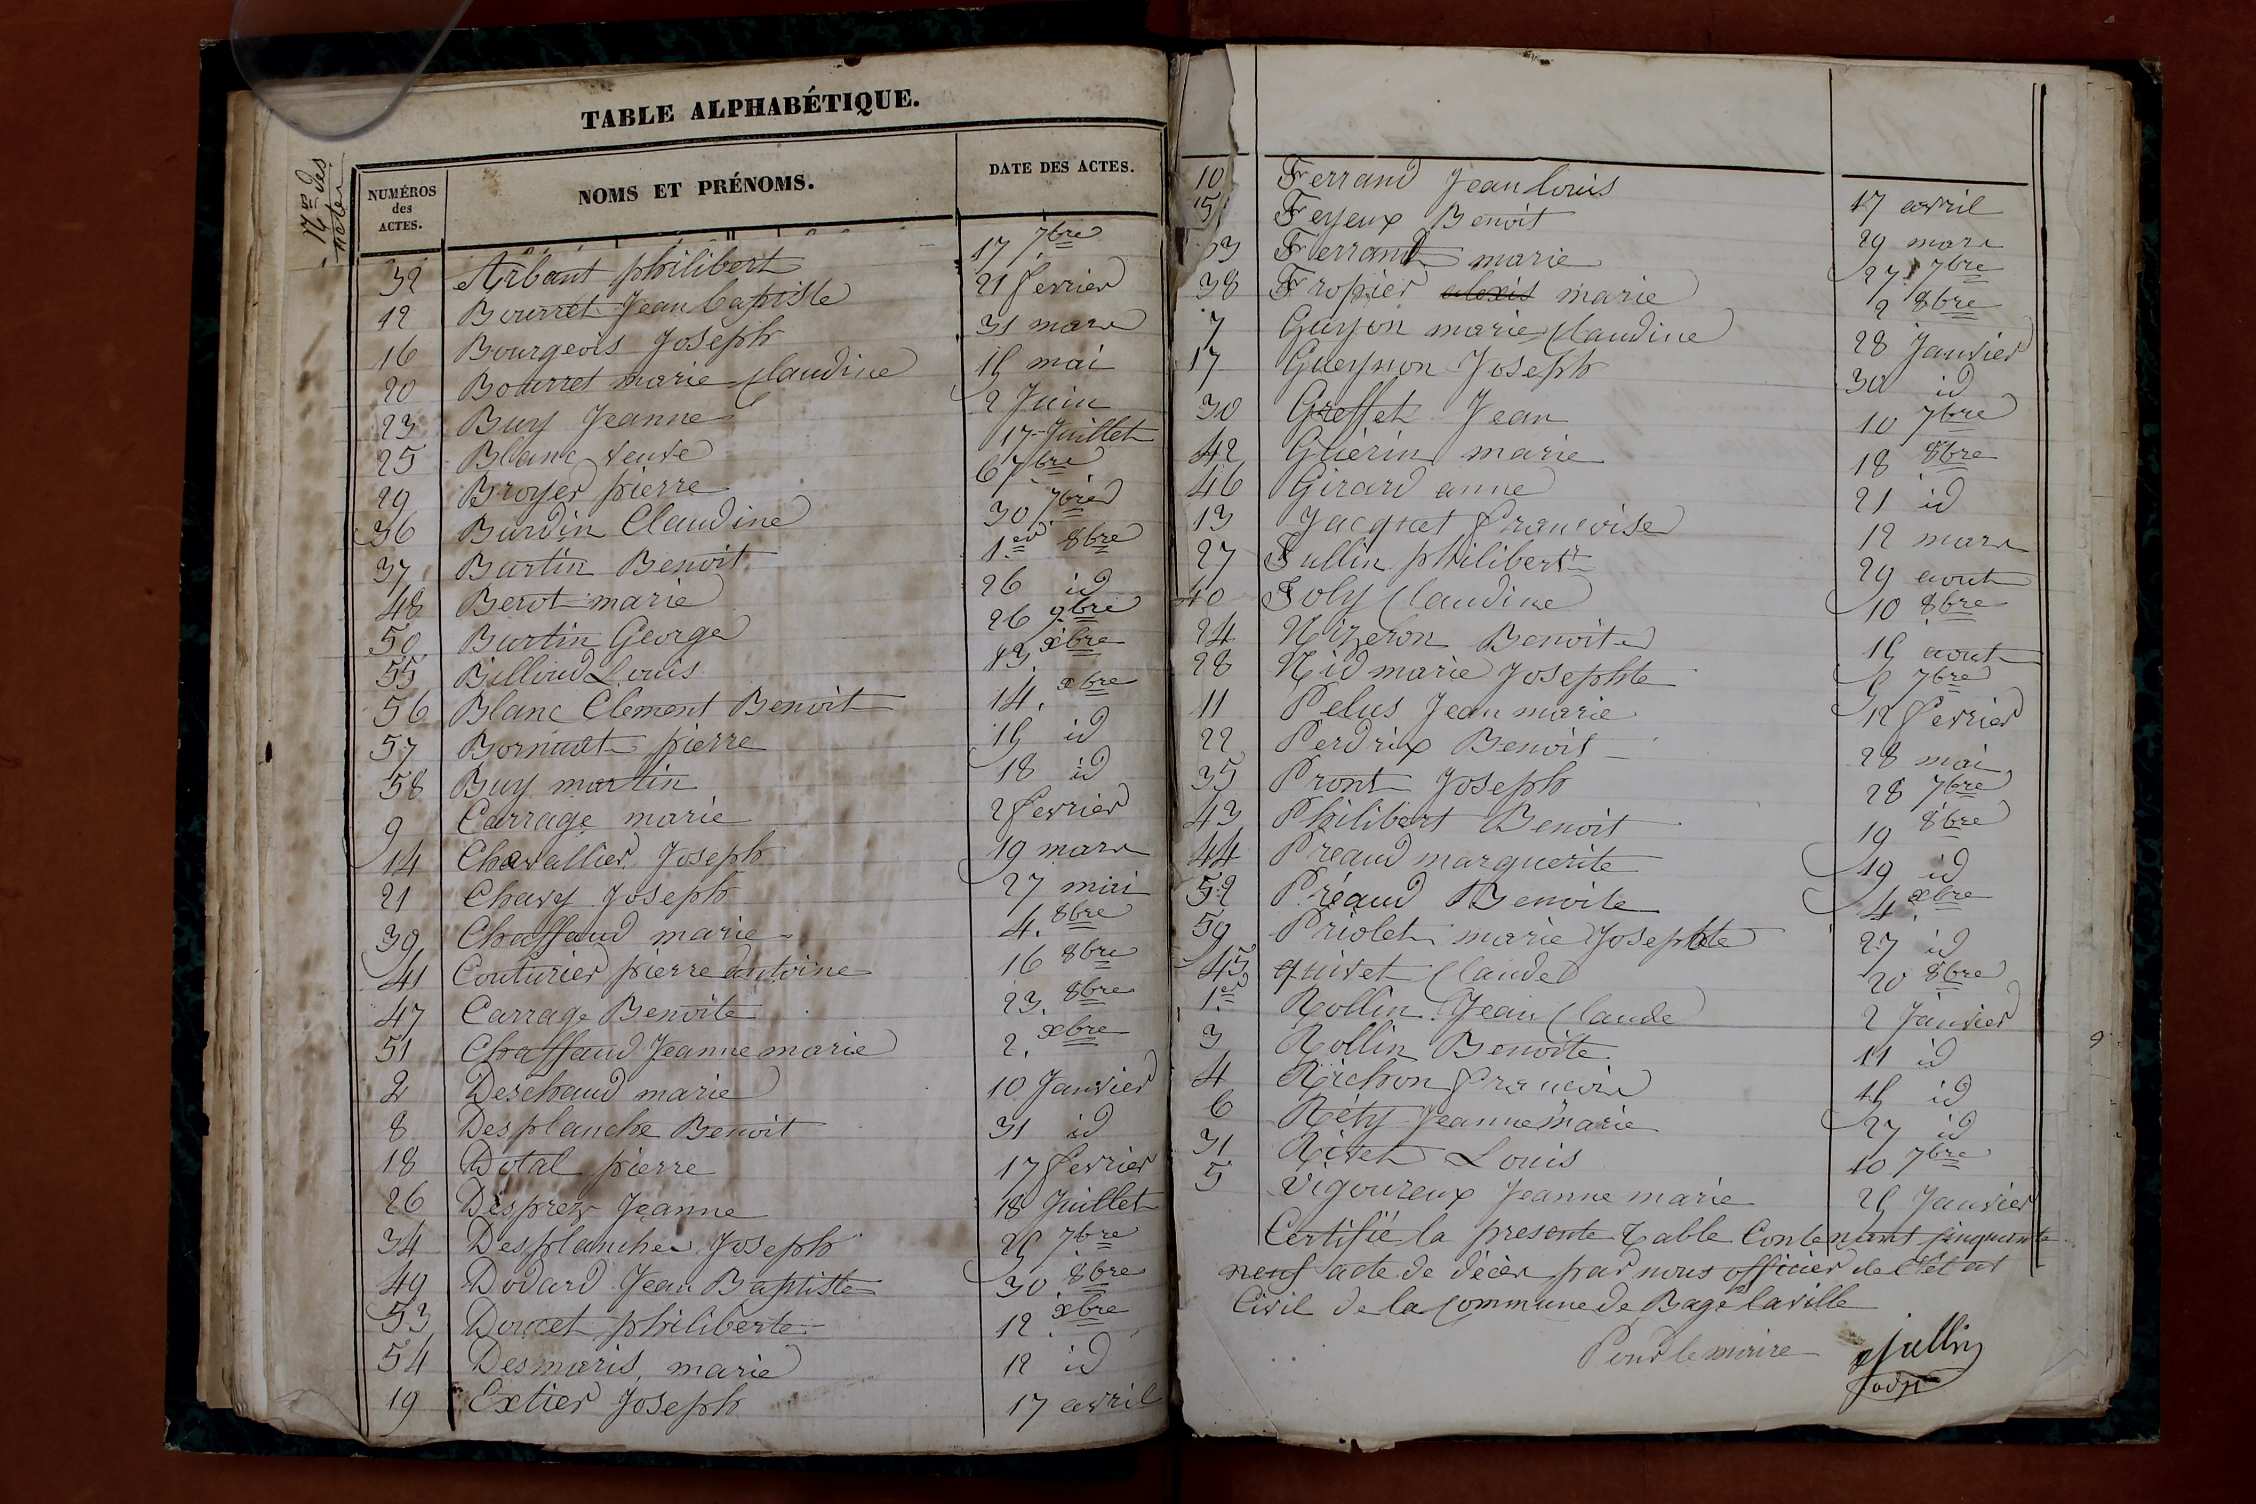 TABLE ALPHABÉTIQUE.
Nos des
actes
NUMÉROS des ACTES. NOMS ET PRÉNOMS. DATE DES ACTES.
32 Arbant philibert 17 7bre
12 Bourret Jean baptiste 21 fevrier
16 Bourgeois Joseph 31 mars
20 Bourret marie Claudine 15 mai
23 Buy Jeanne 2 Juin
25 Blanc veuve 17 Juillet
29 Broyer pierre 6 7bre
36 Burdin Claudine 30 7bre
37 Burtin Benoit 1er 8bre
48 Berot marie 26 id
50 Burtin George 26 9bre
55 Billoud Louis 13 xbre
56 Blanc Clement Benoit 14. xbre
57 Bornuat pierre 15 id
58 Buy martin 18 id
9 Carrage marie 2 fevrier
14 Chavallier Joseph 19 mars
21 Chavy Joseph 27 mai
39 Chaffaud marie 4. 8bre
41 Couturier pierre antoine 16 8bre
47 Carrage Benoite 23. 8bre
51 Chaffaud Jeanne marie 2. xbre
2 Deschaud marie 10 Janvier
8 Desplanche Benoit 31 id
18 Dotal pierre 17 fevrier
26 Desprez Jeanne 18 Juillet
34 Desplanches Joseph 25 7bre
49 Dodard Jean Baptiste 30. 8bre
53 Doucet philiberte 12. xbre
54 Desmaris, marie 12 id
19 Extier Joseph 17 avril
10 Ferrand Jean Louis 17 avril
15 Feyeux Benoit 29 mars
33 Ferrand marie 27 7bre
38 Fropier alexis marie 2 8bre
7 Guyon marie Claudine 28 Janvier
17 Gueynon Joseph 30 id
30 Greffet Jean 10 7bre
42 Guérin marie 18 8bre
46 Girard anne 21 id
13 Jacquet francoise 12 mars
27 Jullin philibert 29 aout
40 Joly Claudine 10 8bre
24 Nizeron Benoite 15 aout
28 Nid marie Josephte 6 7bre
11 Pelus Jean marie 12 fevrier
22 Perdrix Benoit 28 mai
35 Pront Joseph 28 7bre
43 Philibert Benoit 19 8bre
44 Préaud marguerite 19 id
52 Préaud Benoite 4 xbre
59 Priolet marie Josephte 27 id
45 quivet Claude 20 8bre
1er Rollin Jean Claude 2 Janvier
3 Rollin Benoite 11 id
4 Richon francois 15 id
6 Réty Jeanne Marie 27 id
31 Rivet Louis 10 7bre
5 Vigoureux Jeanne marie 25 Janvier
Certifié la presente table Contenant cinquante
neuf acte de décès par nous officier de l'état
Civil de la Commune de Bage laville
Pour le maire Jullin
adjt